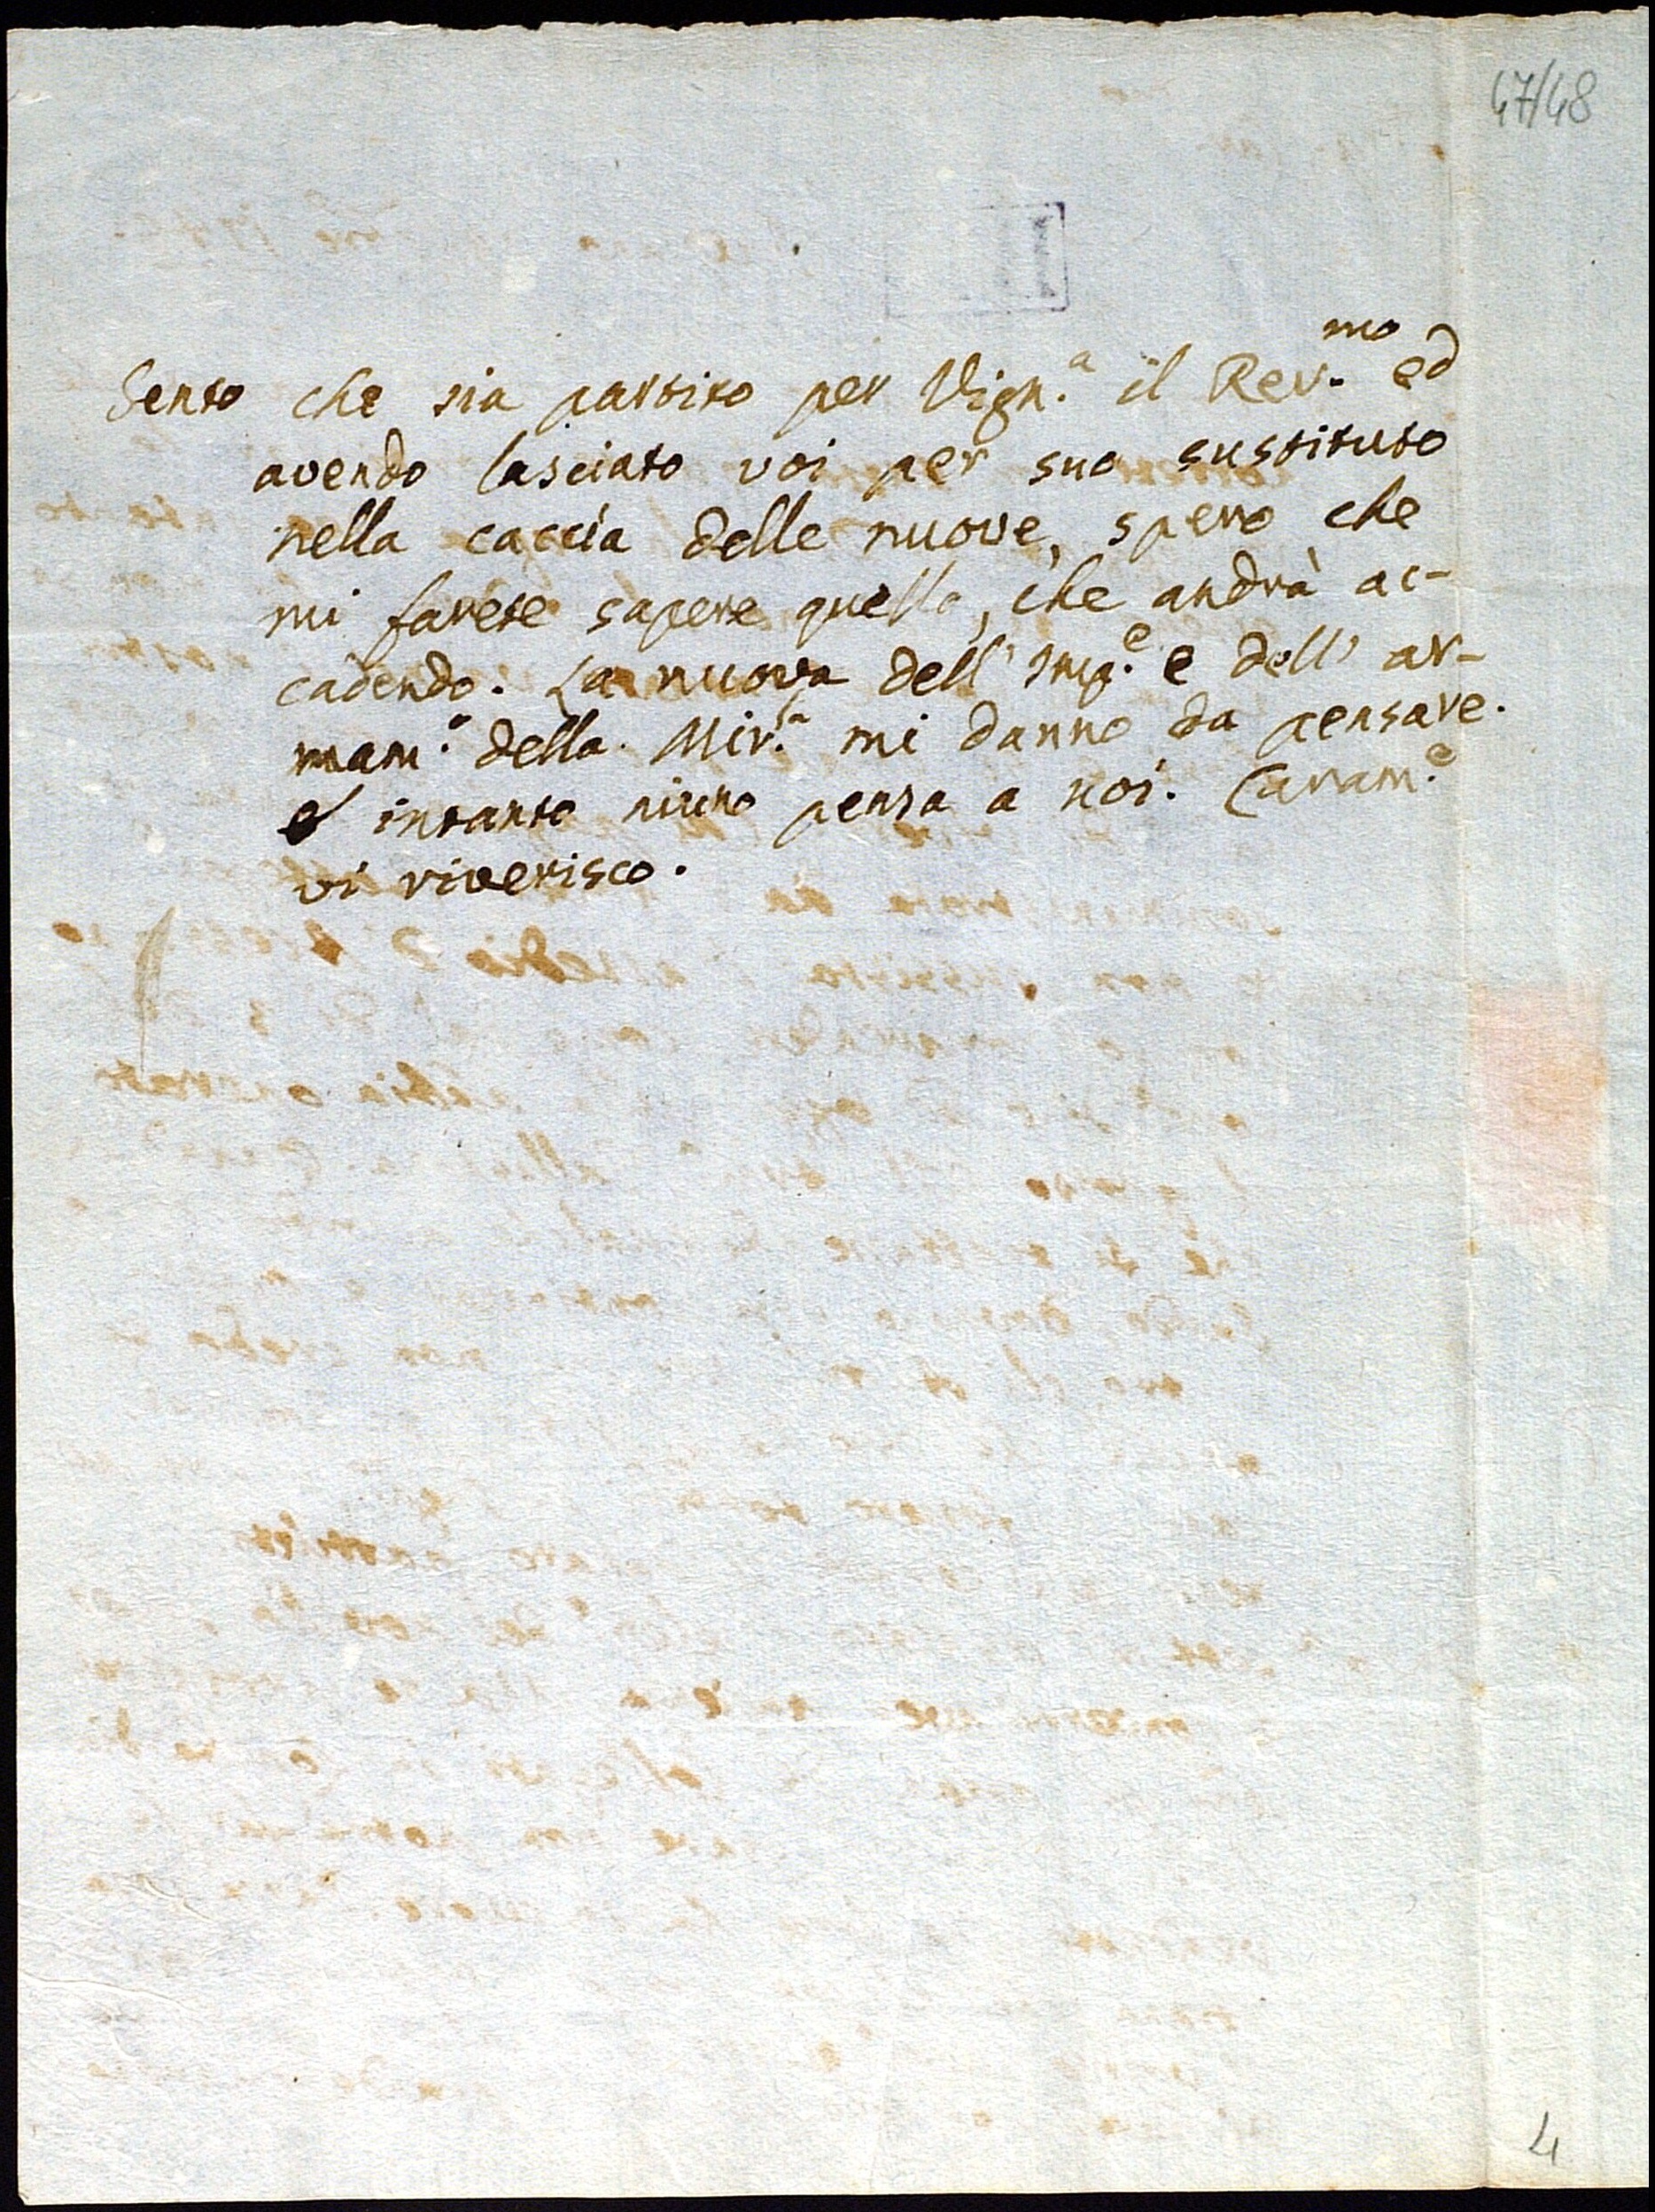 47/48
Sento che sia partito per Vign.ª il Rev.mo ed
avendo lasciato voi per suo sustituto
nella caccia delle nuove, spero che
mi farete sapere quello, che andrà ac-
cadendo. La nuova dell' Imp.e e dell' ar-
mam.o della Mir.ª mi danno da pensare.
e intanto niuno pensa a noi. Caram.e
vi riverisco.
4